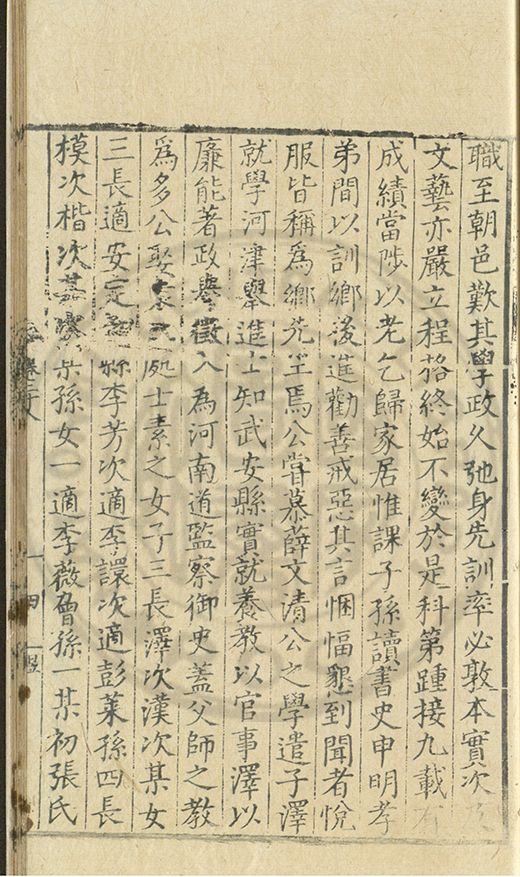 職至朝邑歎其學政久弛身先訓率必敦本實次
文藝亦嚴立程格終始不變於是科第踵接九載有
成績當陟以老乞歸家居惟課子孫讀書史申明孝
弟間以訓鄉後進勸善戒惡其言悃愊懇到聞者悅
服皆稱為鄉先生焉公嘗慕薛文清公之學遣子澤
就學河津舉進士知武安縣實就養教以官事澤以
廉能著政譽徵入為河南道監察御史蓋父師之教
為多公娶處士素之女子三長澤次漢次某女
三長適安定縣李芳次適李譞次適彭萊孫四長
模次楷次某孫女一適李薇曾孫一某初張氏